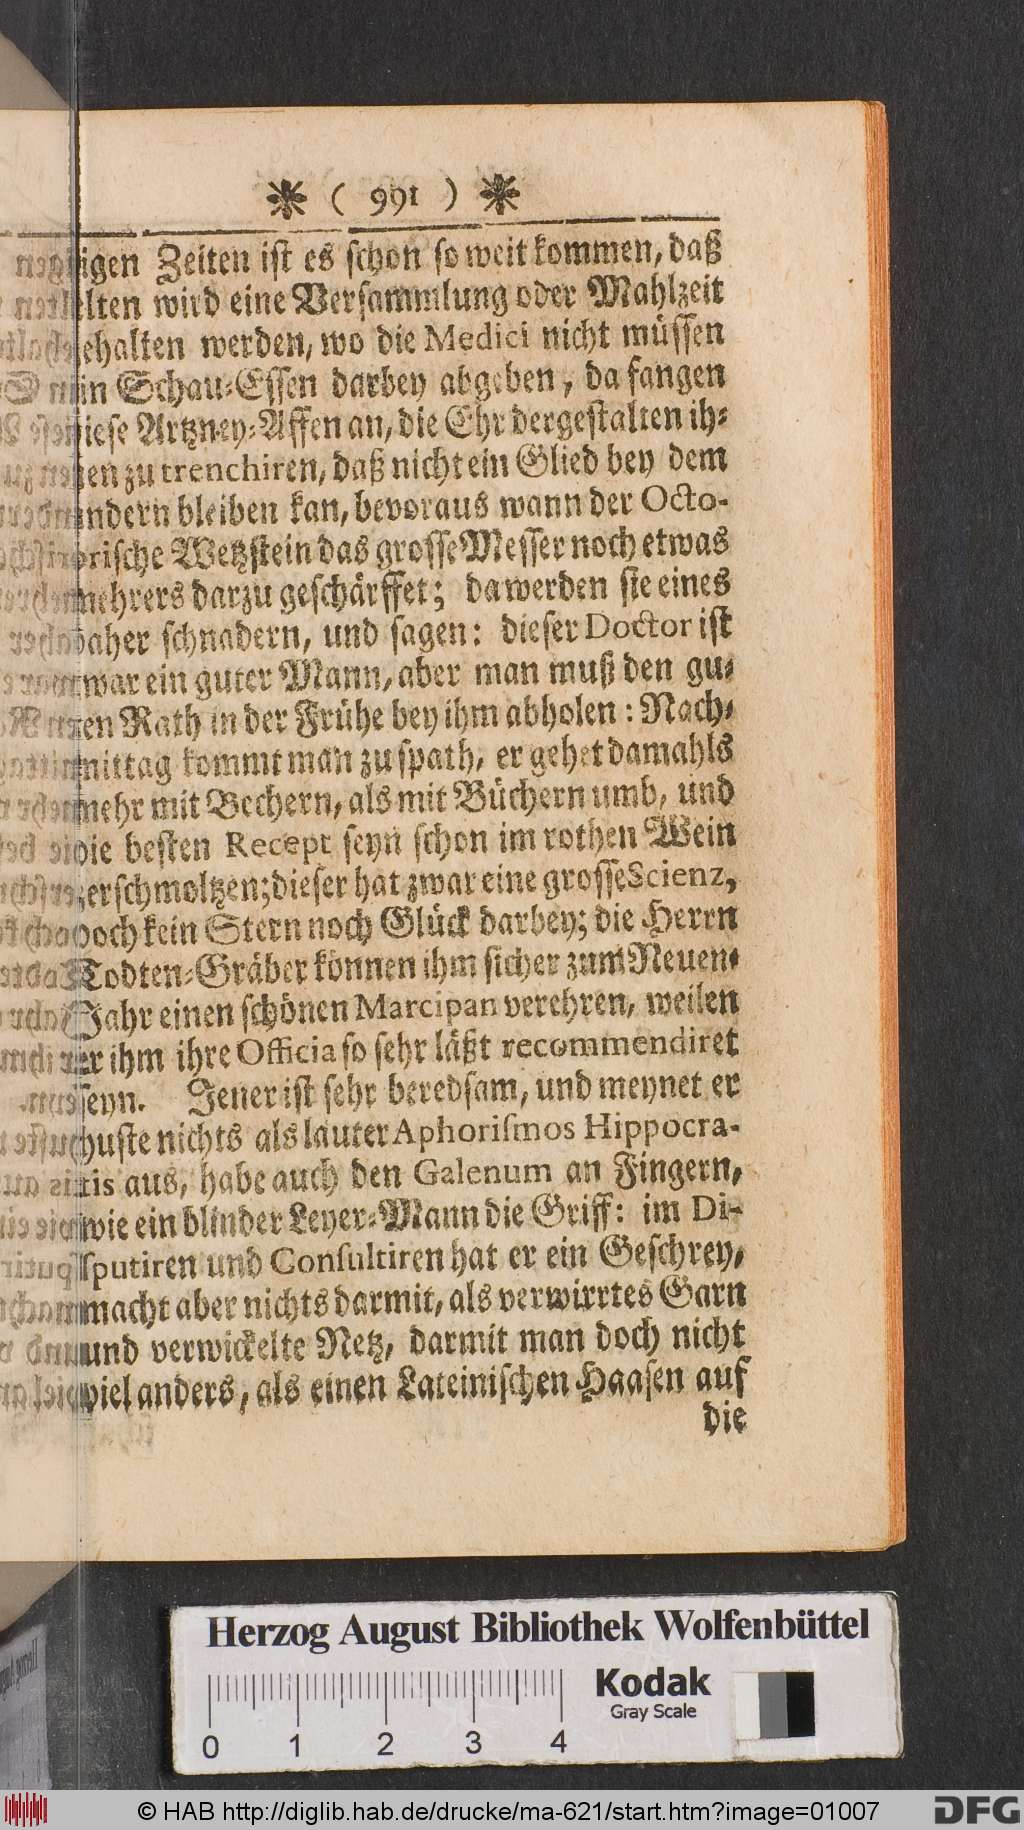 ✷ ( 991 ) ✷
igen Zeiten ist es schon so weit kommen, daß
selten wird eine Versammlung oder Mahlzeit
gehalten werden, wo die Medici nicht müssen
ein Schau-Essen darbey abgeben, da fangen
diese Artzney-Affen an, die Ehr dergestalten ih-
nen zu trenchiren, daß nicht ein Glied bey dem
andern bleiben kan, bevoraus wann der Octo-
rische Wetzstein das grosse Messer noch etwas
mehrers darzu geschärffet; da werden sie eines
daher schnadern, und sagen: dieser Doctor ist
zwar ein guter Mann, aber man muß den gu-
ten Rath in der Frühe bey ihm abholen: Nach-
mittag kommt man zu spath, er gehet damahls
mehr mit Bechern, als mit Büchern umb, und
die besten Recept seyn schon im rothen Wein
zerschmoltzen; dieser hat zwar eine grosse Scienz,
doch kein Stern noch Glück darbey; die Herrn
Todten-Gräber können ihm sicher zum Neuen-
Jahr einen schönen Marcipan verehren, weilen
er ihm ihre Officia so sehr läßt recommendiret
seyn. Jener ist sehr beredsam, und meynet er
huste nichts als lauter Aphorismos Hippocra-
tis aus, habe auch den Galenum an Fingern,
wie ein blinder Leyer-Mann die Griff: im Di-
sputiren und Consultiren hat er ein Geschrey,
macht aber nichts darmit, als verwirrtes Garn
und verwickelte Netz, darmit man doch nicht
viel anders, als einen Lateinischen Haasen auf
die
Herzog August Bibliothek Wolfenbüttel
Kodak
Gray Scale
0 1 2 3 4
© HAB http://diglib.hab.de/drucke/ma-621/start.htm?image=01007
DFG